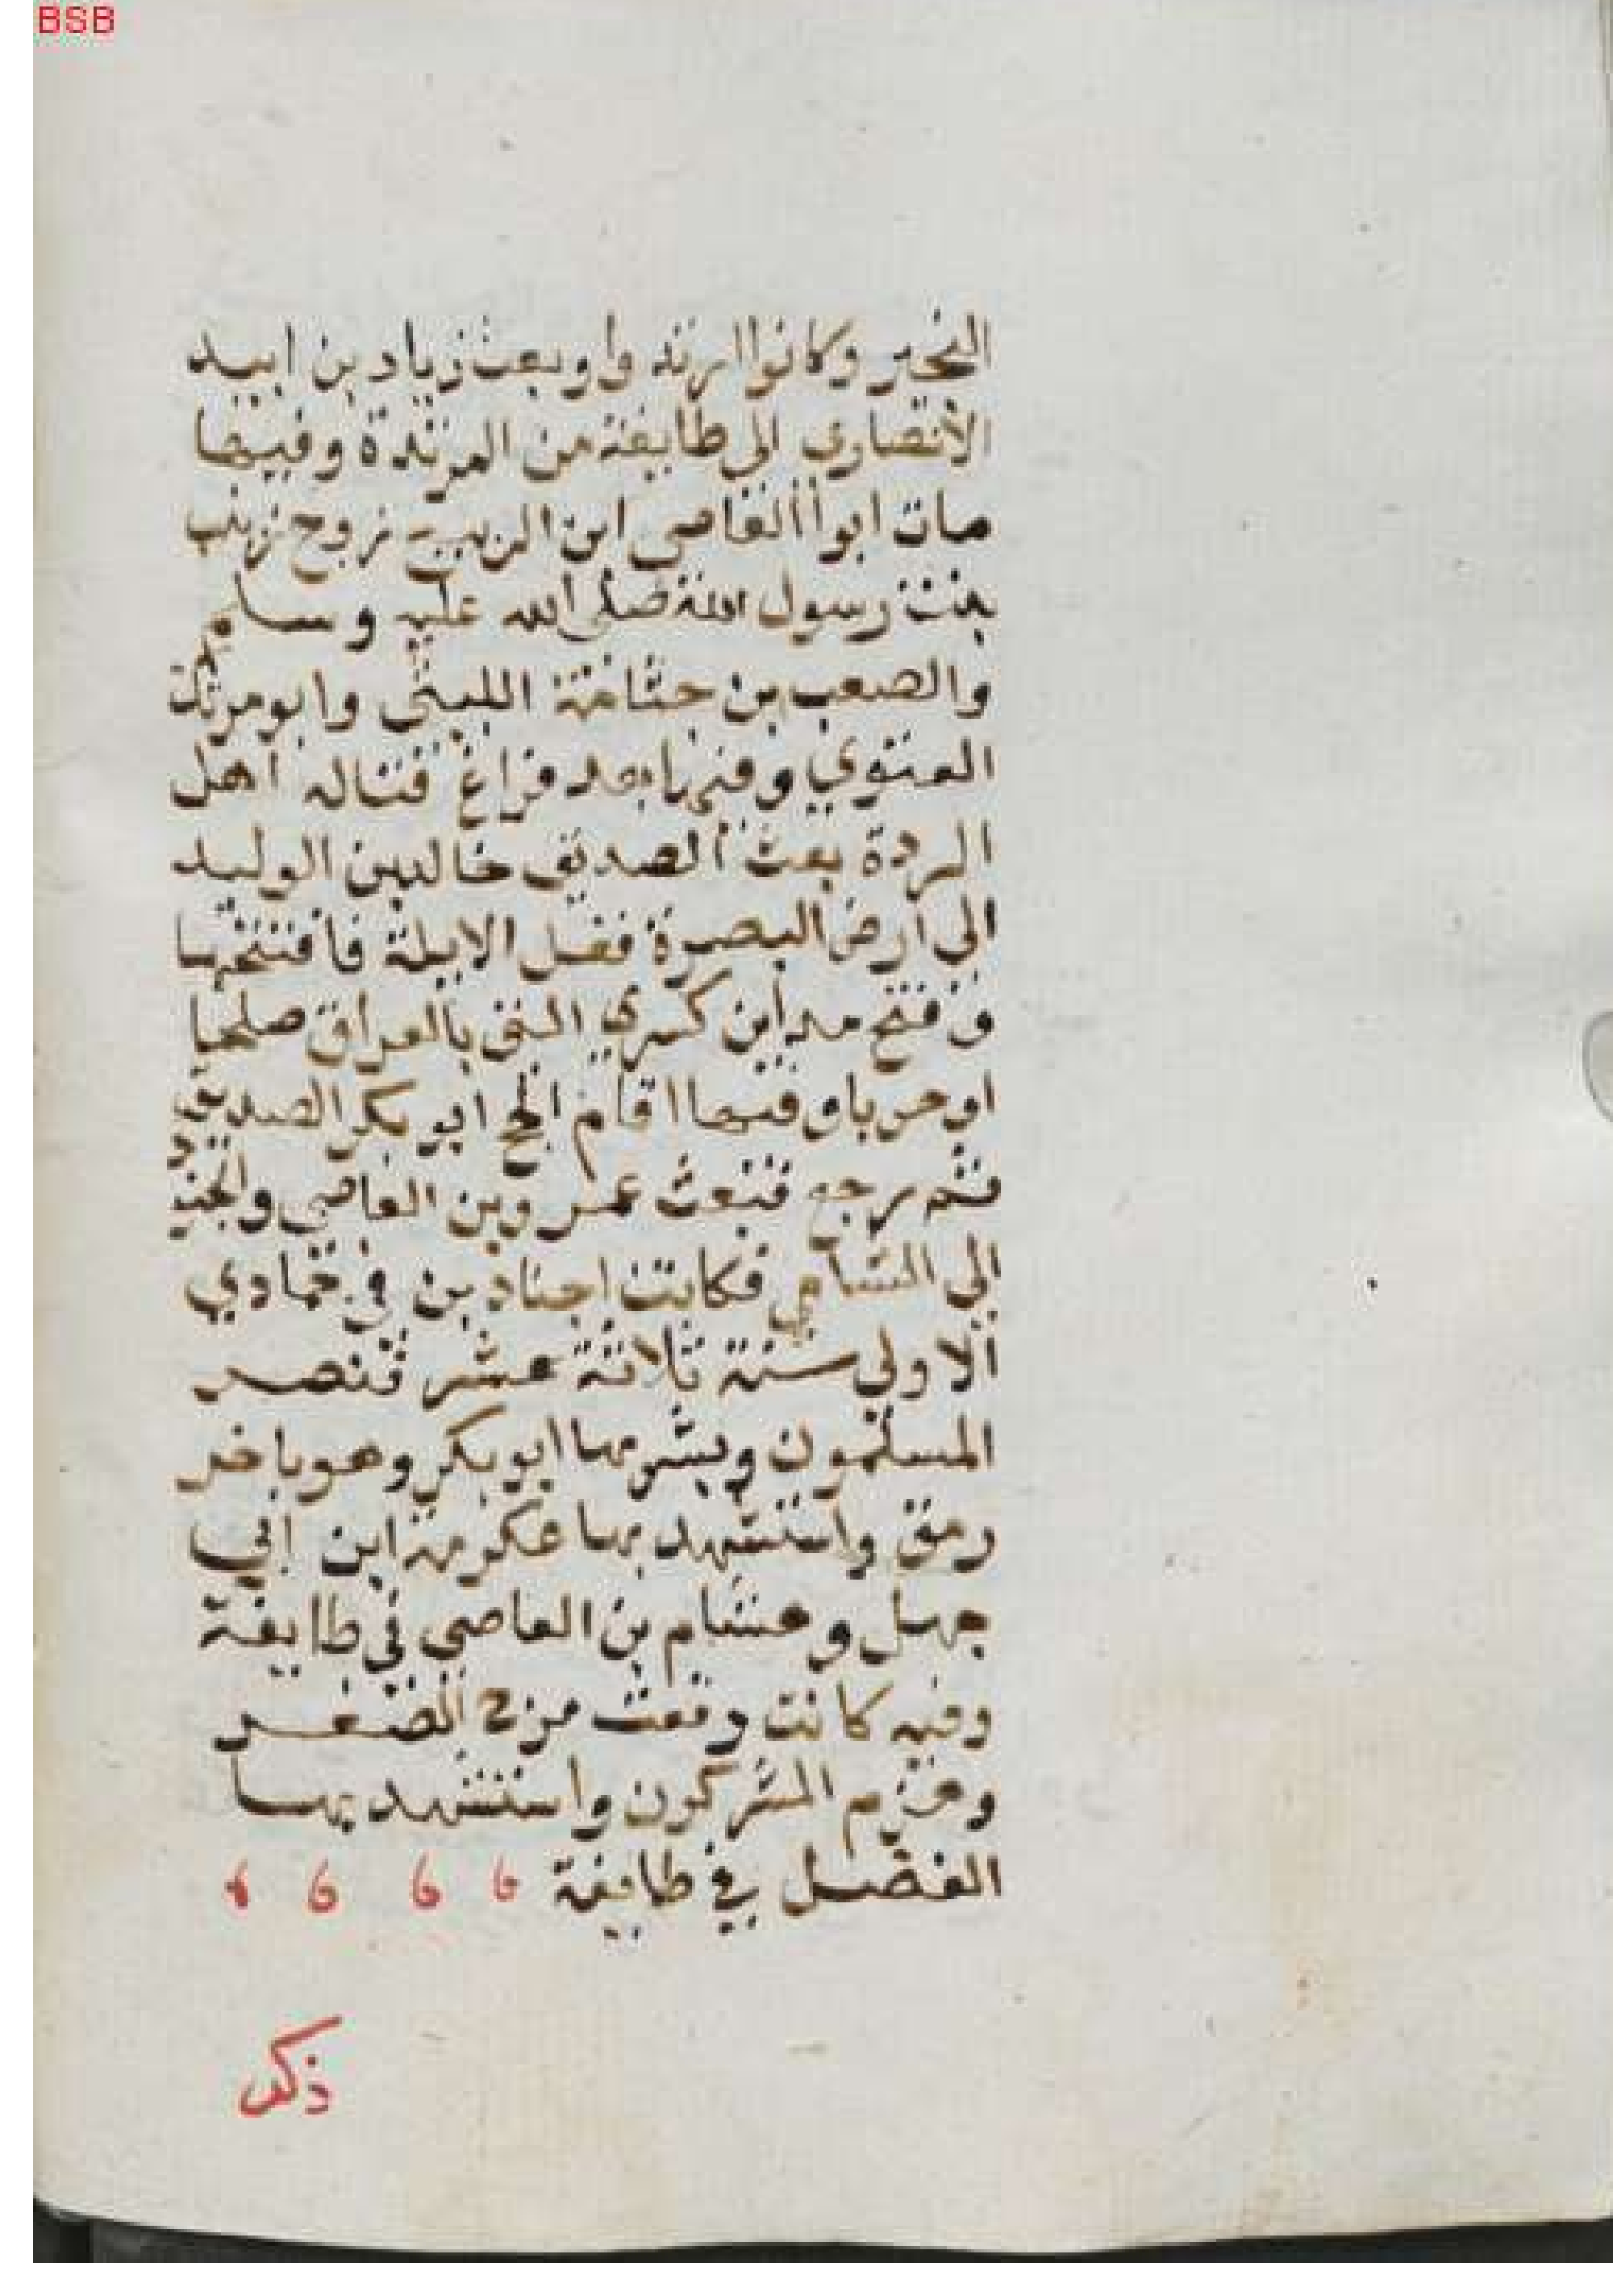 BSB
النجير وكانوا ارتدوا وبعث زياد بن ابيد
الانصاري الى طايفة من المرتدة وفيها
مات ابوا العاصي ابن الربيع زوج زينب
بنت رسول الله صلى الله عليه وسلم
والصعب بن جثامة الليثي وابو مرثد
الغنوي وفيها بعد فراغ قتاله اهل
الردة بعث الصديق خالد بن الوليد
الى ارض البصرة فغزا الابلة فافتتحها
وفتح مداين كسري التي بالعراق صلحا
او حربا وفيها اقام الحج ابو بكر الصديق
ثم رجع فبعث عمرو بن العاصي والجنود
الي الشام فكانت اجنادين في جمادي
الاولي سنة ثلاثة عشر فنصر
المسلمون وبشر بها ابو بكر وهو باخر
رمق واستشهد بها عكرمة ابن ابي
جهل وهشام بن العاصي في طايفة
وفيه كانت وقعت مرج الصفر
وهزم المشركون واستشهد بها
الفضل في طايفة
ذكر